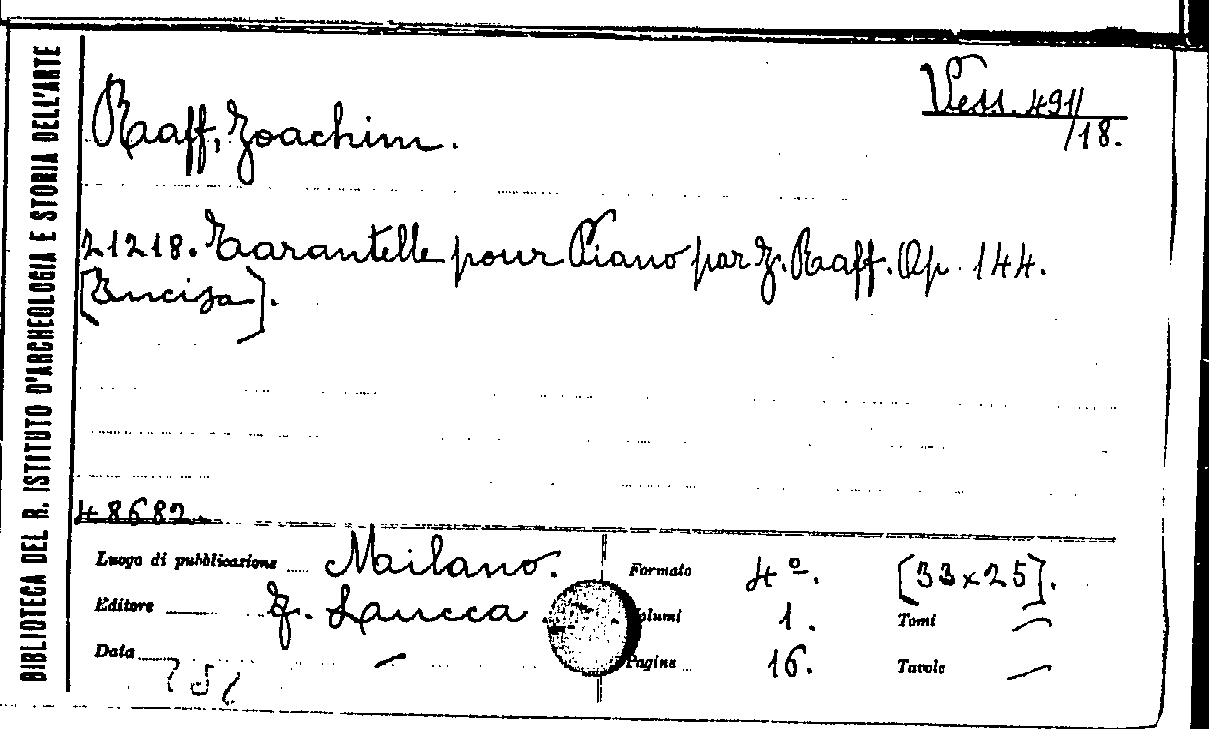 BIBLIOTECA DEL R. ISTITUTO D'ARCHEOLOGIA E STORIA DELL'ARTE
Vess. 491/
/18.
Raff, Joachim.
21218. Tarantelle pour Piano par J. Raff. Op. 144.
[Incisa].
48682.
Luogo di pubblicazione Mailano.
Editore
Data
Formato 4º. [33x25].
Volumi 1. Tomi —
Pagine 16. Tavole —